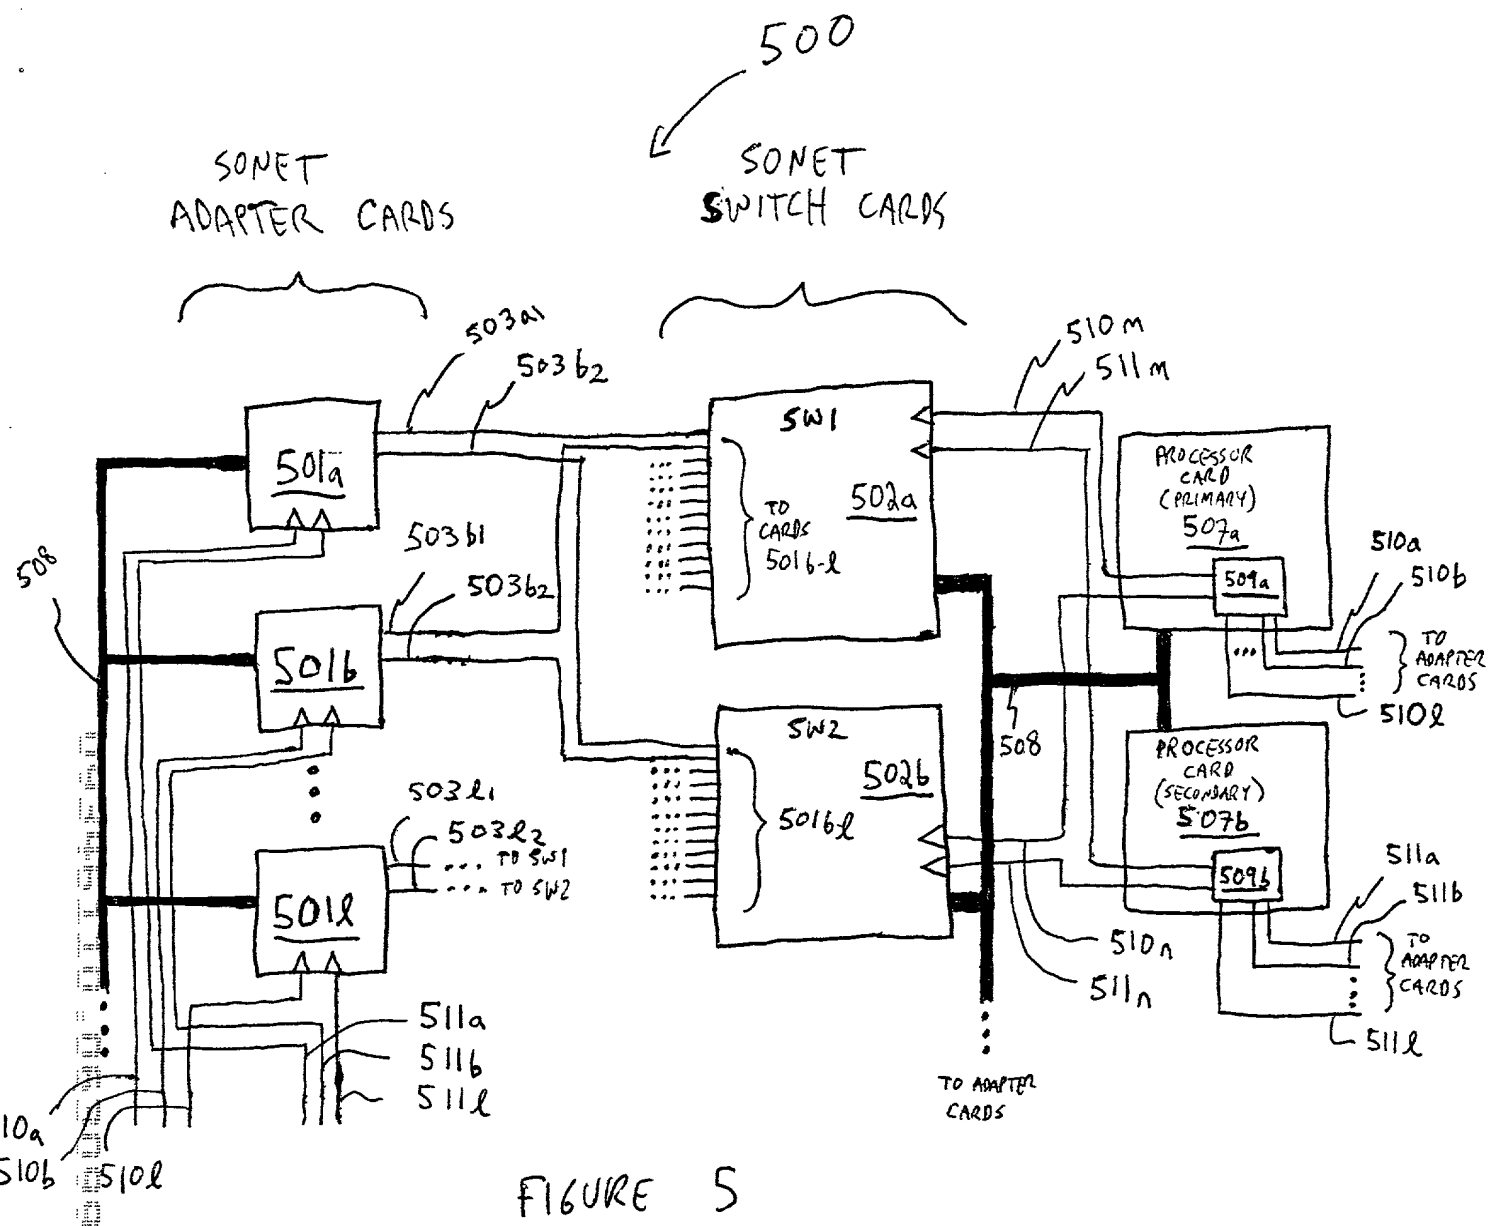 500
SONET
ADAPTER CARDS
SONET
SWITCH CARDS
503a1
503b2
510m
511m
SW1
501a
502a
TO
CARDS
501b-l
PROCESSOR
CARD
(PRIMARY)
507a
509a
510a
510b
TO
ADAPTER
CARDS
510l
508
503b1
503b2
501b
508
SW2
502b
501b-l
PROCESSOR
CARD
(SECONDARY)
507b
509b
511a
511b
TO
ADAPTER
CARDS
511l
503l1
503l2
... TO SW1
... TO SW2
501l
510n
511n
511a
511b
511l
TO ADAPTER
CARDS
10a
510b
510l
FIGURE 5